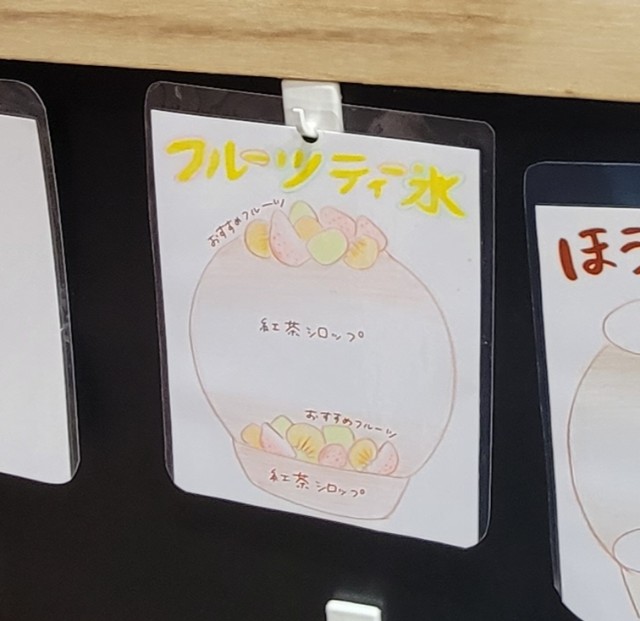 フルーツティー氷
おすすめフルーツ
紅茶シロップ
おすすめフルーツ
紅茶シロップ
ほう